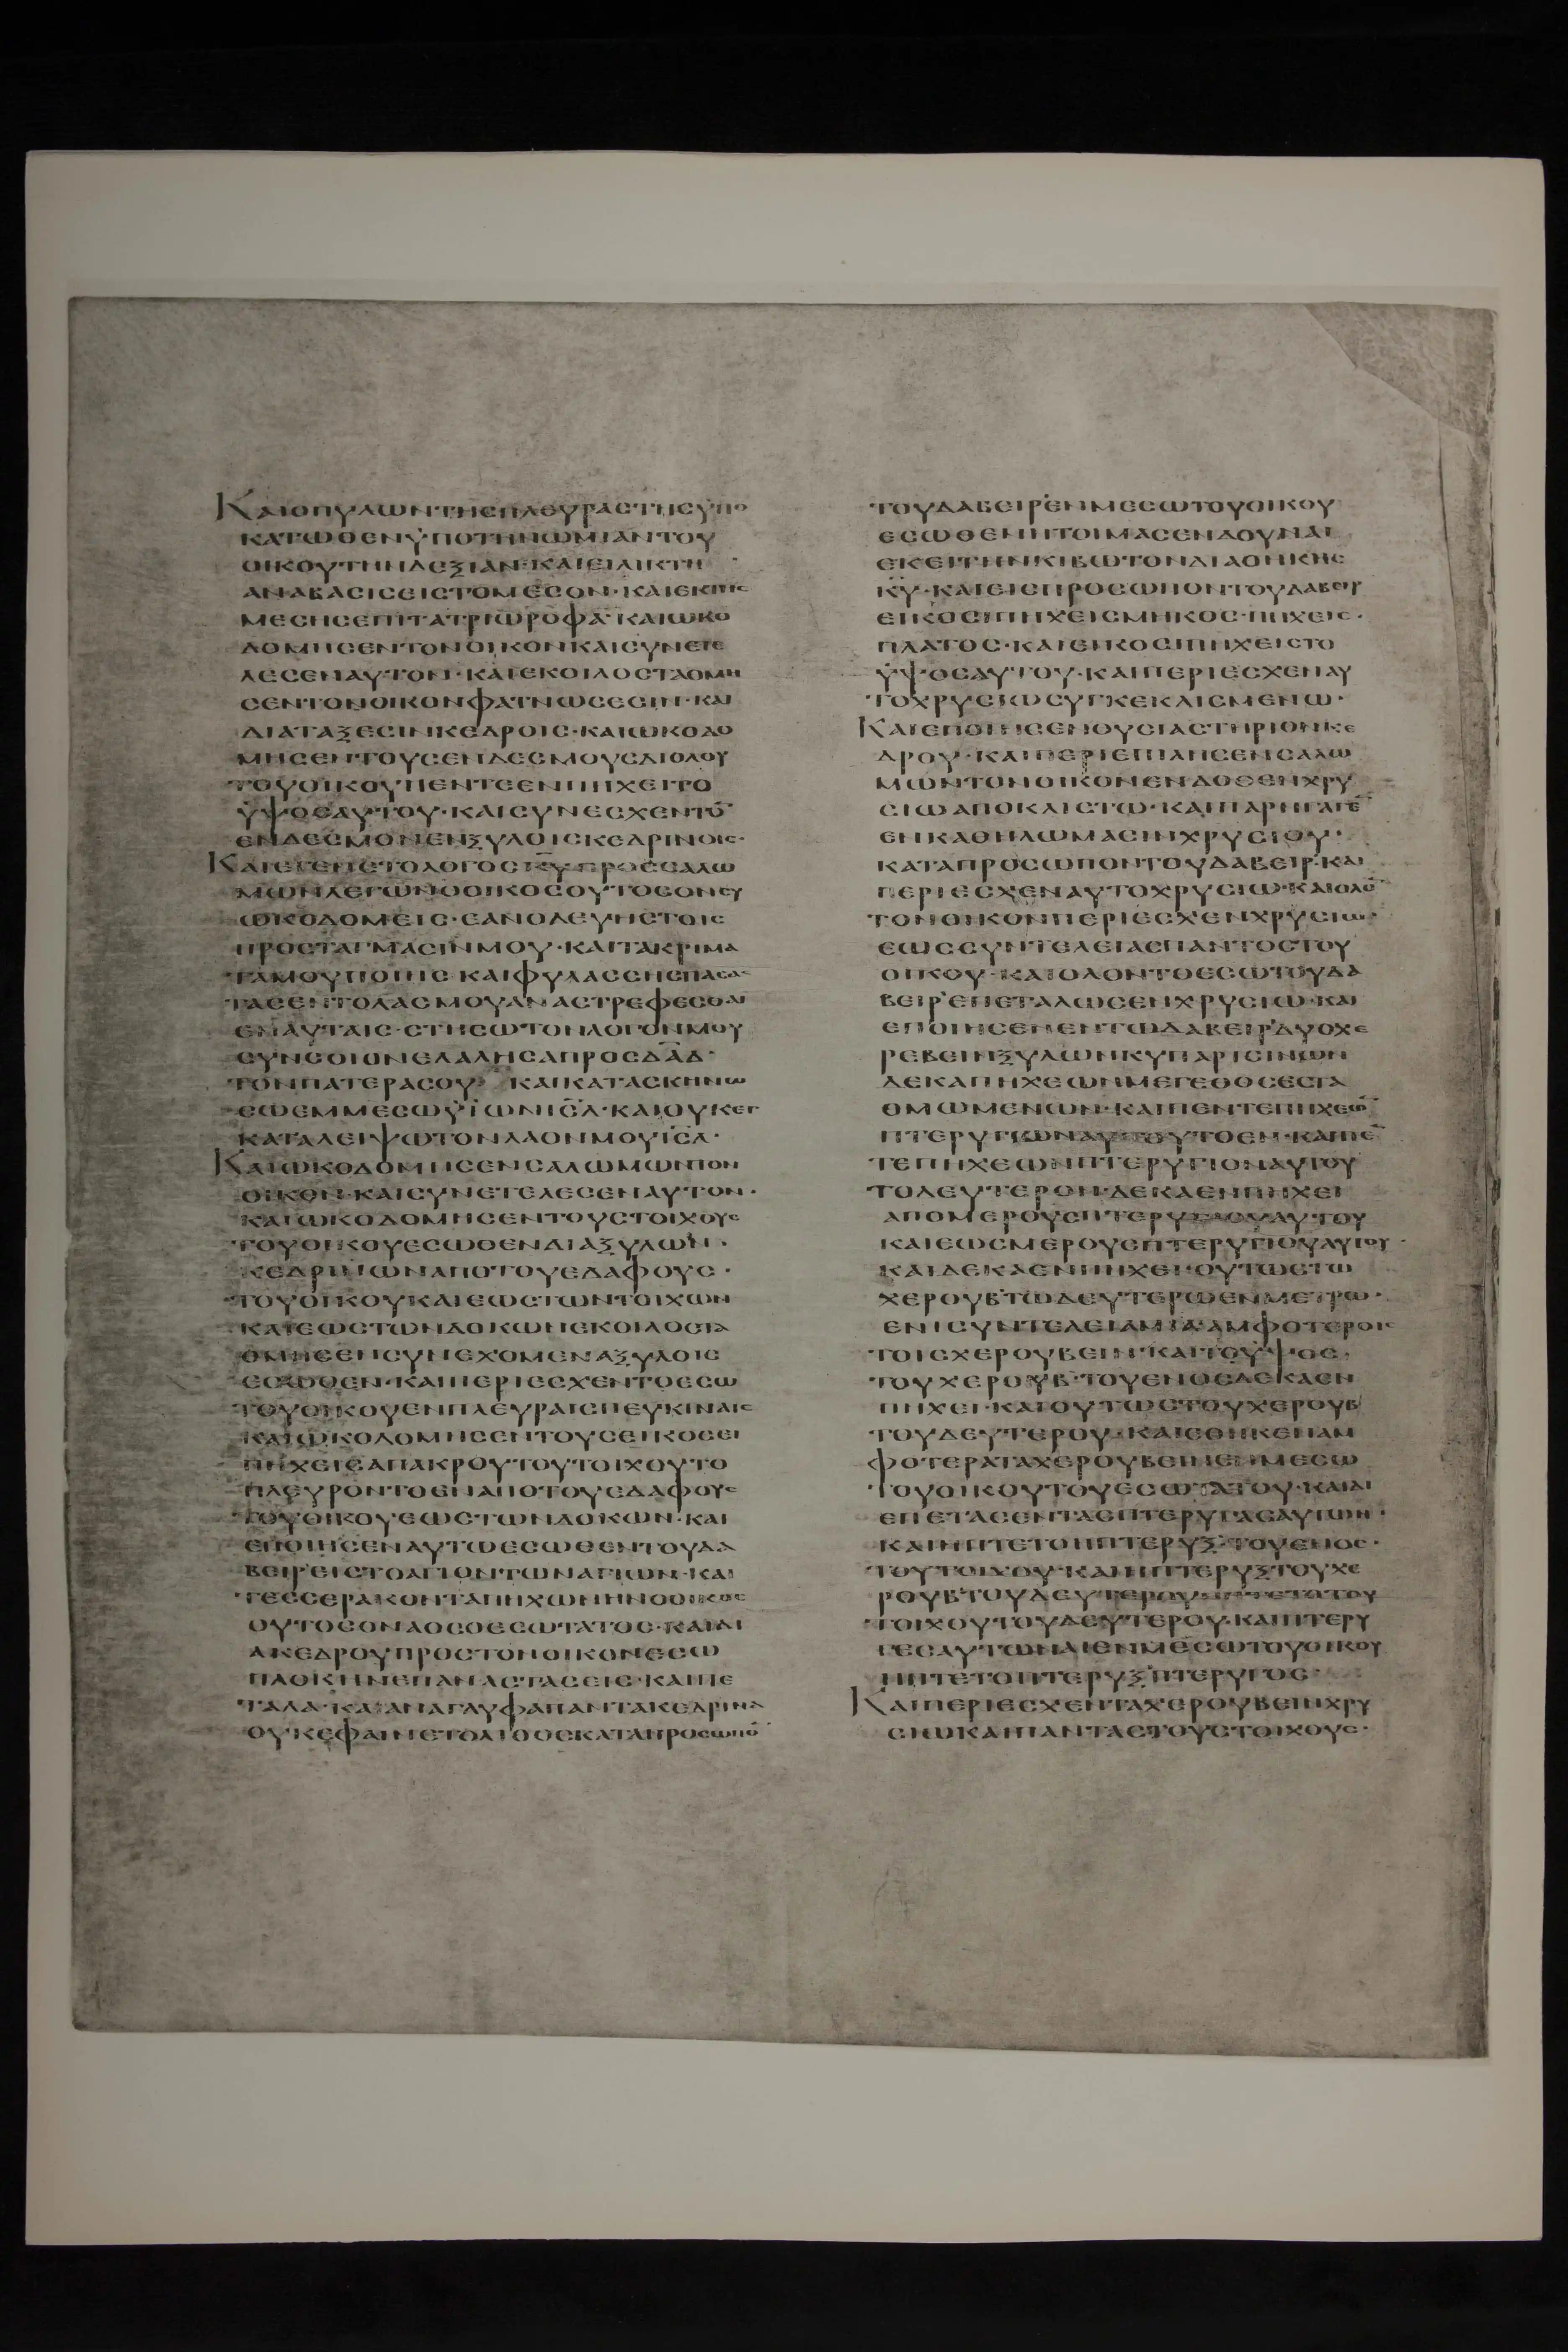 ΚΑΙΟΠΥΛΩΝΤΗΣΠΛΕΥΡΑΣΤΗΣΥΠΟ
ΚΑΤΩΘΕΝΫΠΟΤΗΝΩΜΙΑΝΤΟΥ
ΟΙΚΟΥΤΗΝΔΕΞΙΑΝ·ΚΑΙΕΙΛΙΚΤΗ
ΑΝΑΒΑΣΙΣΕΙΣΤΟΜΕΣΟΝ·ΚΑΙΕΚΤΗΣ
ΜΕΣΗΣΕΠΙΤΑΤΡΙΩΡΟΦΑ·ΚΑΙΩΚΟ
ΔΟΜΗΣΕΝΤΟΝΟΙΚΟΝΚΑΙΣΥΝΕΤΕ
ΛΕΣΕΝΑΥΤΟΝ·ΚΑΙΕΚΟΙΛΟΣΤΑΘΜΗ
ΣΕΝΤΟΝΟΙΚΟΝΦΑΤΝΩΣΕΣΙΝ·ΚΑΙ
ΔΙΑΤΑΞΕΣΙΝΚΕΔΡΟΙΣ·ΚΑΙΩΚΟΔΟ
ΜΗΣΕΝΤΟΥΣΕΝΔΕΣΜΟΥΣΔΙΟΛΟΥ
ΤΟΥΟΙΚΟΥΠΕΝΤΕΕΝΠΗΧΕΙΤΟ
ΫΨΟΣΑΥΤΟΥ·ΚΑΙΣΥΝΕΣΧΕΝΤΟ̅
ΕΝΔΕΣΜΟΝΕΝΞΥΛΟΙΣΚΕΔΡΙΝΟΙΣ·
ΚΑΙΕΓΕΝΕΤΟΛΟΓΟΣΚ̅Υ̅ΠΡΟΣΣΑΛΩ
ΜΩΝΛΕΓΩΝΟΟΙΚΟΣΟΥΤΟΣΟΝΣΥ
ΩΚΟΔΟΜΕΙΣ·ΕΑΝΟΔΕΥΗΣΤΟΙΣ
ΠΡΟΣΤΑΓΜΑΣΙΝΜΟΥ·ΚΑΙΤΑΚΡΙΜΑ
ΤΑΜΟΥΠΟΙΗΣΚΑΙΦΥΛΑΣΣΗΣΠΑΣΑΣ
ΤΑΣΕΝΤΟΛΑΣΜΟΥΑΝΑΣΤΡΕΦΕΣΘΑΙ
ΕΝΑΥΤΑΙΣ·ΣΤΗΣΩΤΟΝΛΟΓΟΝΜΟΥ
ΣΥΝΣΟΙΟΝΕΛΑΛΗΣΑΠΡΟΣΔ̅Α̅Δ̅·
ΤΟΝΠΑΤΕΡΑΣΟΥ ΚΑΙΚΑΤΑΣΚΗΝΩ
ΣΩΕΜΜΕΣΩΫΪΩΝΙΣ̅Λ̅·ΚΑΙΟΥΚΕΓ
ΚΑΤΑΛΕΙΨΩΤΟΝΛΑΟΝΜΟΥΙΣ̅Λ̅·
ΚΑΙΩΚΟΔΟΜΗΣΕΝΣΑΛΩΜΩΝΤΟΝ
ΟΙΚΟΝ·ΚΑΙΣΥΝΕΤΕΛΕΣΕΝΑΥΤΟΝ·
ΚΑΙΩΚΟΔΟΜΗΣΕΝΤΟΥΣΤΟΙΧΟΥΣ
ΤΟΥΟΙΚΟΥΕΣΩΘΕΝΔΙΑΞΥΛΩΝ·
ΚΕΔΡΙΝΩΝΑΠΟΤΟΥΕΔΑΦΟΥΣ·
ΤΟΥΟΙΚΟΥΚΑΙΕΩΣΤΩΝΤΟΙΧΩΝ
ΚΑΙΕΩΣΤΩΝΔΟΚΩΝΕΚΟΙΛΟΣΤΑ
ΘΜΗΣΕΝΣΥΝΕΧΟΜΕΝΑΞΥΛΟΙΣ
ΕΣΩΘΕΝ·ΚΑΙΠΕΡΙΕΣΧΕΝΤΟΕΣΩ
ΤΟΥΟΙΚΟΥΕΝΠΛΕΥΡΑΙΣΠΕΥΚΙΝΑΙΣ
ΚΑΙΩΚΟΔΟΜΗΣΕΝΤΟΥΣΕΙΚΟΣΕΙ
ΠΗΧΕΙΣΑΠΑΚΡΟΥΤΟΥΤΟΙΧΟΥΤΟ
ΠΛΕΥΡΟΝΤΟΕΝΑΠΟΤΟΥΕΔΑΦΟΥΣ
ΤΟΥΟΙΚΟΥΕΩΣΤΩΝΔΟΚΩΝ·ΚΑΙ
ΕΠΟΙΗΣΕΝΑΥΤΩΕΣΩΘΕΝΤΟΥΔΑ
ΒΕΙΡ'ΕΙΣΤΟΑΓΙΟΝΤΩΝΑΓΙΩΝ·ΚΑΙ
ΤΕΣΣΕΡΑΚΟΝΤΑΠΗΧΩΝΗΝΟΟΙΚΟΣ
ΟΥΤΟΣΟΝΑΟΣΟΕΣΩΤΑΤΟΣ·ΚΑΙΔΙ
ΑΚΕΔΡΟΥΠΡΟΣΤΟΝΟΙΚΟΝΕΣΩ
ΠΛΟΚΗΝΕΠΑΝΑΣΤΑΣΕΙΣ·ΚΑΙΠΕ
ΤΑΛΑ·ΚΑΙΑΝΑΓΛΥΦΑΠΑΝΤΑΚΕΔΡΙΝΑ
ΟΥΚΕΦΑΙΝΕΤΟΛΙΘΟΣΚΑΤΑΠΡΟΣΩΠΟ̅
ΤΟΥΔΑΒΕΙΡ'ΕΝΜΕΣΩΤΟΥΟΙΚΟΥ
ΕΣΩΘΕΝΗΤΟΙΜΑΣΕΝΔΟΥΝΑΙ
ΕΚΕΙΤΗΝΚΙΒΩΤΟΝΔΙΑΘΗΚΗΣ
Κ̅Υ̅·ΚΑΙΕΙΣΠΡΟΣΩΠΟΝΤΟΥΔΑΒΕΙΡ
ΕΙΚΟΣΙΠΗΧΕΙΣΜΗΚΟΣ·ΠΗΧΕΙΣ·
ΠΛΑΤΟΣ·ΚΑΙΕΙΚΟΣΙΠΗΧΕΙΣΤΟ
ΫΨΟΣΑΥΤΟΥ·ΚΑΙΠΕΡΙΕΣΧΕΝΑΥ
ΤΟΧΡΥΣΙΩΣΥΓΚΕΚΛΙΣΜΕΝΩ·
ΚΑΙΕΠΟΙΗΣΕΝΘΥΣΙΑΣΤΗΡΙΟΝΚΕ
ΔΡΟΥ·ΚΑΙΠΕΡΙΕΠΙΛΗΣΕΝΣΑΛΩ
ΜΩΝΤΟΝΟΙΚΟΝΕΝΔΟΘΕΝΧΡΥ
ΣΙΩΑΠΟΚΛΙΣΤΩ·ΚΑΙΠΑΡΗΓΑΓΕ̅
ΕΝΚΑΘΗΛΩΜΑΣΙΝΧΡΥΣΙΟΥ·
ΚΑΤΑΠΡΟΣΩΠΟΝΤΟΥΔΑΒΕΙΡ·ΚΑΙ
ΠΕΡΙΕΣΧΕΝΑΥΤΟΧΡΥΣΙΩ·ΚΑΙΟΛΟ̅
ΤΟΝΟΙΚΟΝΠΕΡΙΕΣΧΕΝΧΡΥΣΙΩ·
ΕΩΣΣΥΝΤΕΛΕΙΑΣΠΑΝΤΟΣΤΟΥ
ΟΙΚΟΥ·ΚΑΙΟΛΟΝΤΟΕΣΩΤΟΥΔΑ
ΒΕΙΡ'ΕΠΕΤΑΛΩΣΕΝΧΡΥΣΙΩ·ΚΑΙ
ΕΠΟΙΗΣΕΝΕΝΤΩΔΑΒΕΙΡ'ΔΥΟΧΕ
ΡΕΒΕΙΝΞΥΛΩΝΚΥΠΑΡΙΣΙΝΩΝ
ΔΕΚΑΠΗΧΕΩΝΜΕΓΕΘΟΣΕΣΤΑ
ΘΜΩΜΕΝΩΝ·ΚΑΙΠΕΝΤΕΠΗΧΕΩ̅
ΠΤΕΡΥΓΙΟΝΑΥΤΟΥΤΟΕΝ·ΚΑΙΠΕ̅
ΤΕΠΗΧΕΩΝΠΤΕΡΥΓΙΟΝΑΥΤΟΥ
ΤΟΔΕΥΤΕΡΟΝ·ΔΕΚΑΕΝΠΗΧΕΙ
ΑΠΟΜΕΡΟΥΣΠΤΕΡΥΓΙΟΥΑΥΤΟΥ
ΚΑΙΕΩΣΜΕΡΟΥΣΠΤΕΡΥΓΙΟΥΑΥΤΟΥ·
ΚΑΙΔΕΚΑΕΝΠΗΧΕΙ·ΟΥΤΩΣΤΩ
ΧΕΡΟΥΒ'ΤΩΔΕΥΤΕΡΩΕΝΜΕΤΡΩ·
ΕΝΙΣΥΝΤΕΛΕΙΑΜΙΑ·ΑΜΦΟΤΕΡΟΙΣ
ΤΟΙΣΧΕΡΟΥΒΕΙΝ·ΚΑΙΤΟΫΨΟΣ·
ΤΟΥΧΕΡΟΥΒ·ΤΟΥΕΝΟΣΔΕΚΑΕΝ
ΠΗΧΕΙ·ΚΑΙΟΥΤΩΣΤΟΥΧΕΡΟΥΒ
ΤΟΥΔΕΥΤΕΡΟΥ·ΚΑΙΕΘΗΚΕΝΑΜ
ΦΟΤΕΡΑΤΑΧΕΡΟΥΒΕΙΝΕΝΜΕΣΩ
ΤΟΥΟΙΚΟΥΤΟΥΕΣΩΤΑΤΟΥ·ΚΑΙΔΙ
ΕΠΕΤΑΣΕΝΤΑΣΠΤΕΡΥΓΑΣΑΥΤΩΝ·
ΚΑΙΗΠΤΕΤΟΗΠΤΕΡΥΞ·ΤΟΥΕΝΟΣ·
ΤΟΥΤΟΙΧΟΥ·ΚΑΙΗΠΤΕΡΥΞΤΟΥΧΕ
ΡΟΥΒ'ΤΟΥΔΕΥΤΕΡΟΥΗΠΤΕΤΟΤΟΥ
ΤΟΙΧΟΥΤΟΥΔΕΥΤΕΡΟΥ·ΚΑΙΠΤΕΡΥ
ΓΕΣΑΥΤΩΝΑΙΕΝΜΕΣΩΤΟΥΟΙΚΟΥ
ΗΠΤΕΤΟΠΤΕΡΥΞΠΤΕΡΥΓΟΣ·
ΚΑΙΠΕΡΙΕΣΧΕΝΤΑΧΕΡΟΥΒΕΙΝΧΡΥ
ΣΙΩΚΑΙΠΑΝΤΑΣΤΟΥΣΤΟΙΧΟΥΣ·